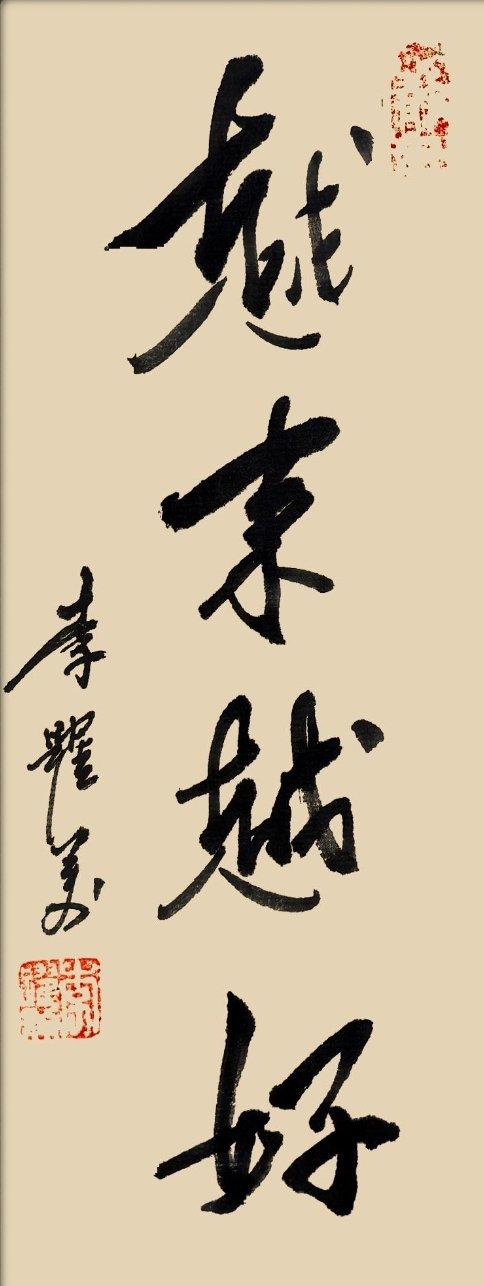 越来越好
李耀美